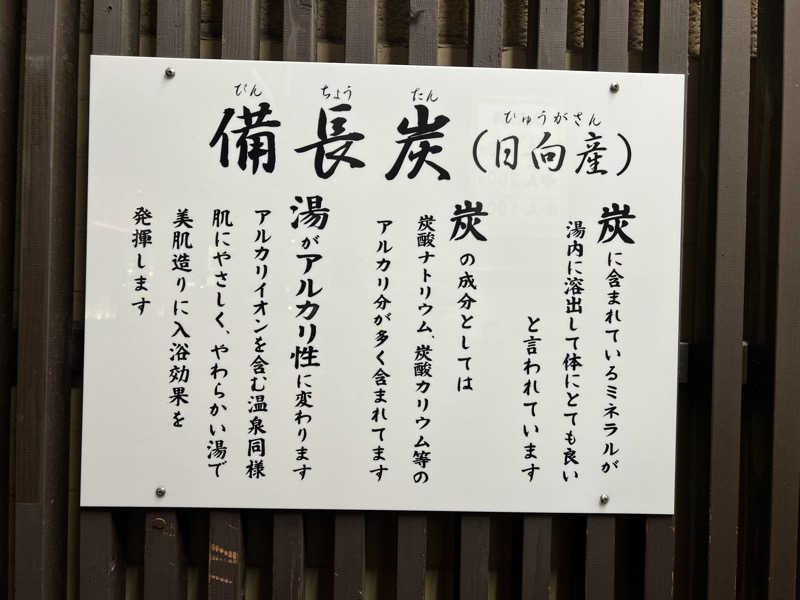 びん ちょう たん ひゅうがさん
備長炭（日向産）
炭に含まれているミネラルが
湯内に溶出して体にとても良い
と言われています
炭の成分としては
炭酸ナトリウム、炭酸カリウム等の
アルカリ分が多く含まれてます
湯がアルカリ性に変わります
アルカリイオンを含む温泉同様
肌にやさしく、やわらかい湯で
美肌造りに入浴効果を
発揮します